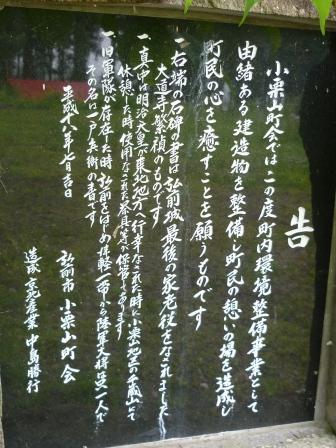 告
小栗山町会ではこの度町内環境整備事業として
由緒ある建造物を整備し町民の憩いの場を造成し
町民の心を癒すことを願うものです
一 右端の石碑の書は弘前城最後の家老役をなされました
大道寺繁禎のものです
一 真中は明治天皇が東北地方へ行幸なされた時に小栗山地区の千歳山にて
休憩した時使用なされた茶
保管してあります
一 旧軍隊が存在した時弘前をはじめ津軽一市から陸軍大将
一人で
その名は一戸兵衛の書です
平成十八年七月吉日
弘前市 小栗山町会
造成 京北産業 中島勝行